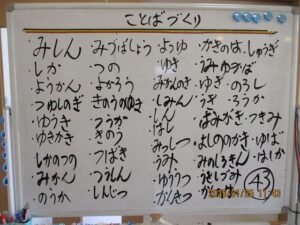 ことばづくり
みしん
しか
ようかん
つゆしのぎ
ゆうき
ゆきかき
しかのつの
みかん
のうか
みづばしょう
つの
よかろう
きのうのゆき
つうか
きのう
つばき
つうしん
しんじつ
ようゆ
ゆき
みかんのき
しみん
しん
はし
みっしつ
うみ
ゆううつ
かきのは しゅうぎ
うみ ゆかば
ゆぎ のろし
うき ろうか
はみがき つきみ
よしのがき ゆば
はしか
43